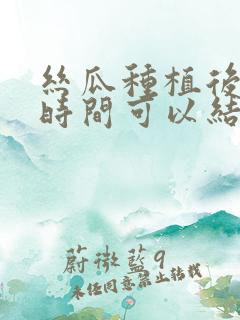 絲瓜種植後
時間可以結
蔚微藍9
未經同意禁止轉載